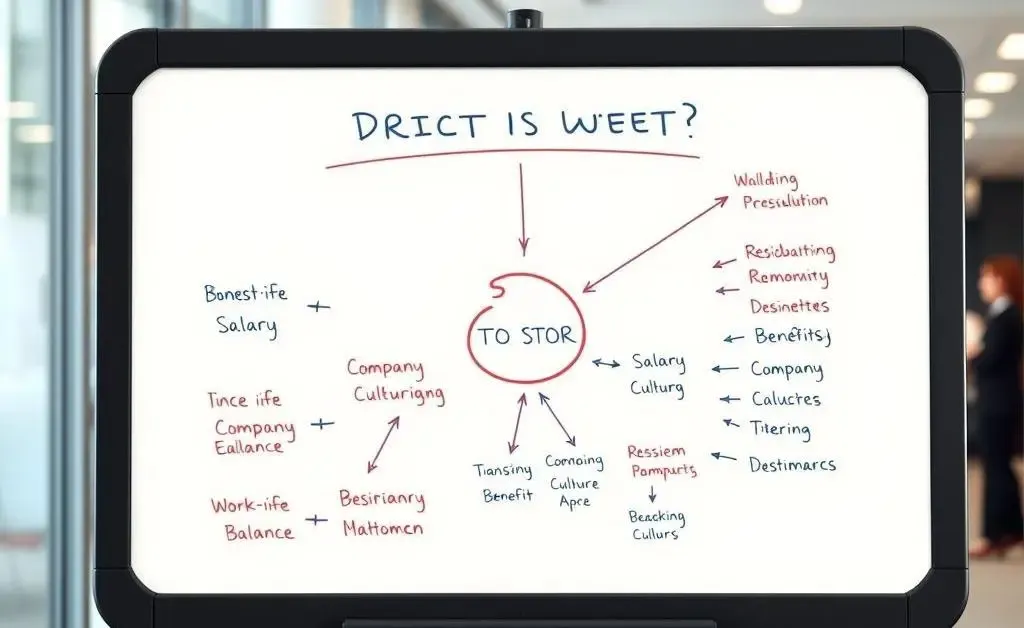 DRICT IS WEET?
Wallding
Presulution
Residbatting
Remomity
Desinettes
Benefits)
Company
Caluctes
Titering
Destimarcs
Bonest-ife
Salary
TO STOR
Salary
Culturg
Company
Culturigng
Tince life
Company
Eallance
Work-life
Balance
Besirianry
Mattomen
Tiansiny
Benefit
Comoing
Culture
Apre
Ressiem
Pampurts
Beacking
Cullurs